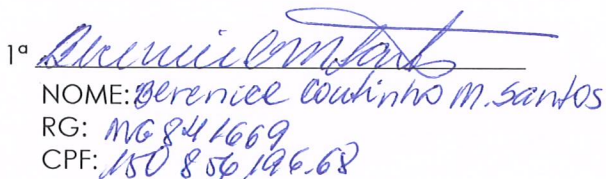 1ª
NOME: Berenice Coutinho M. Santos
RG: MG 841669
CPF: 150 856 196-68